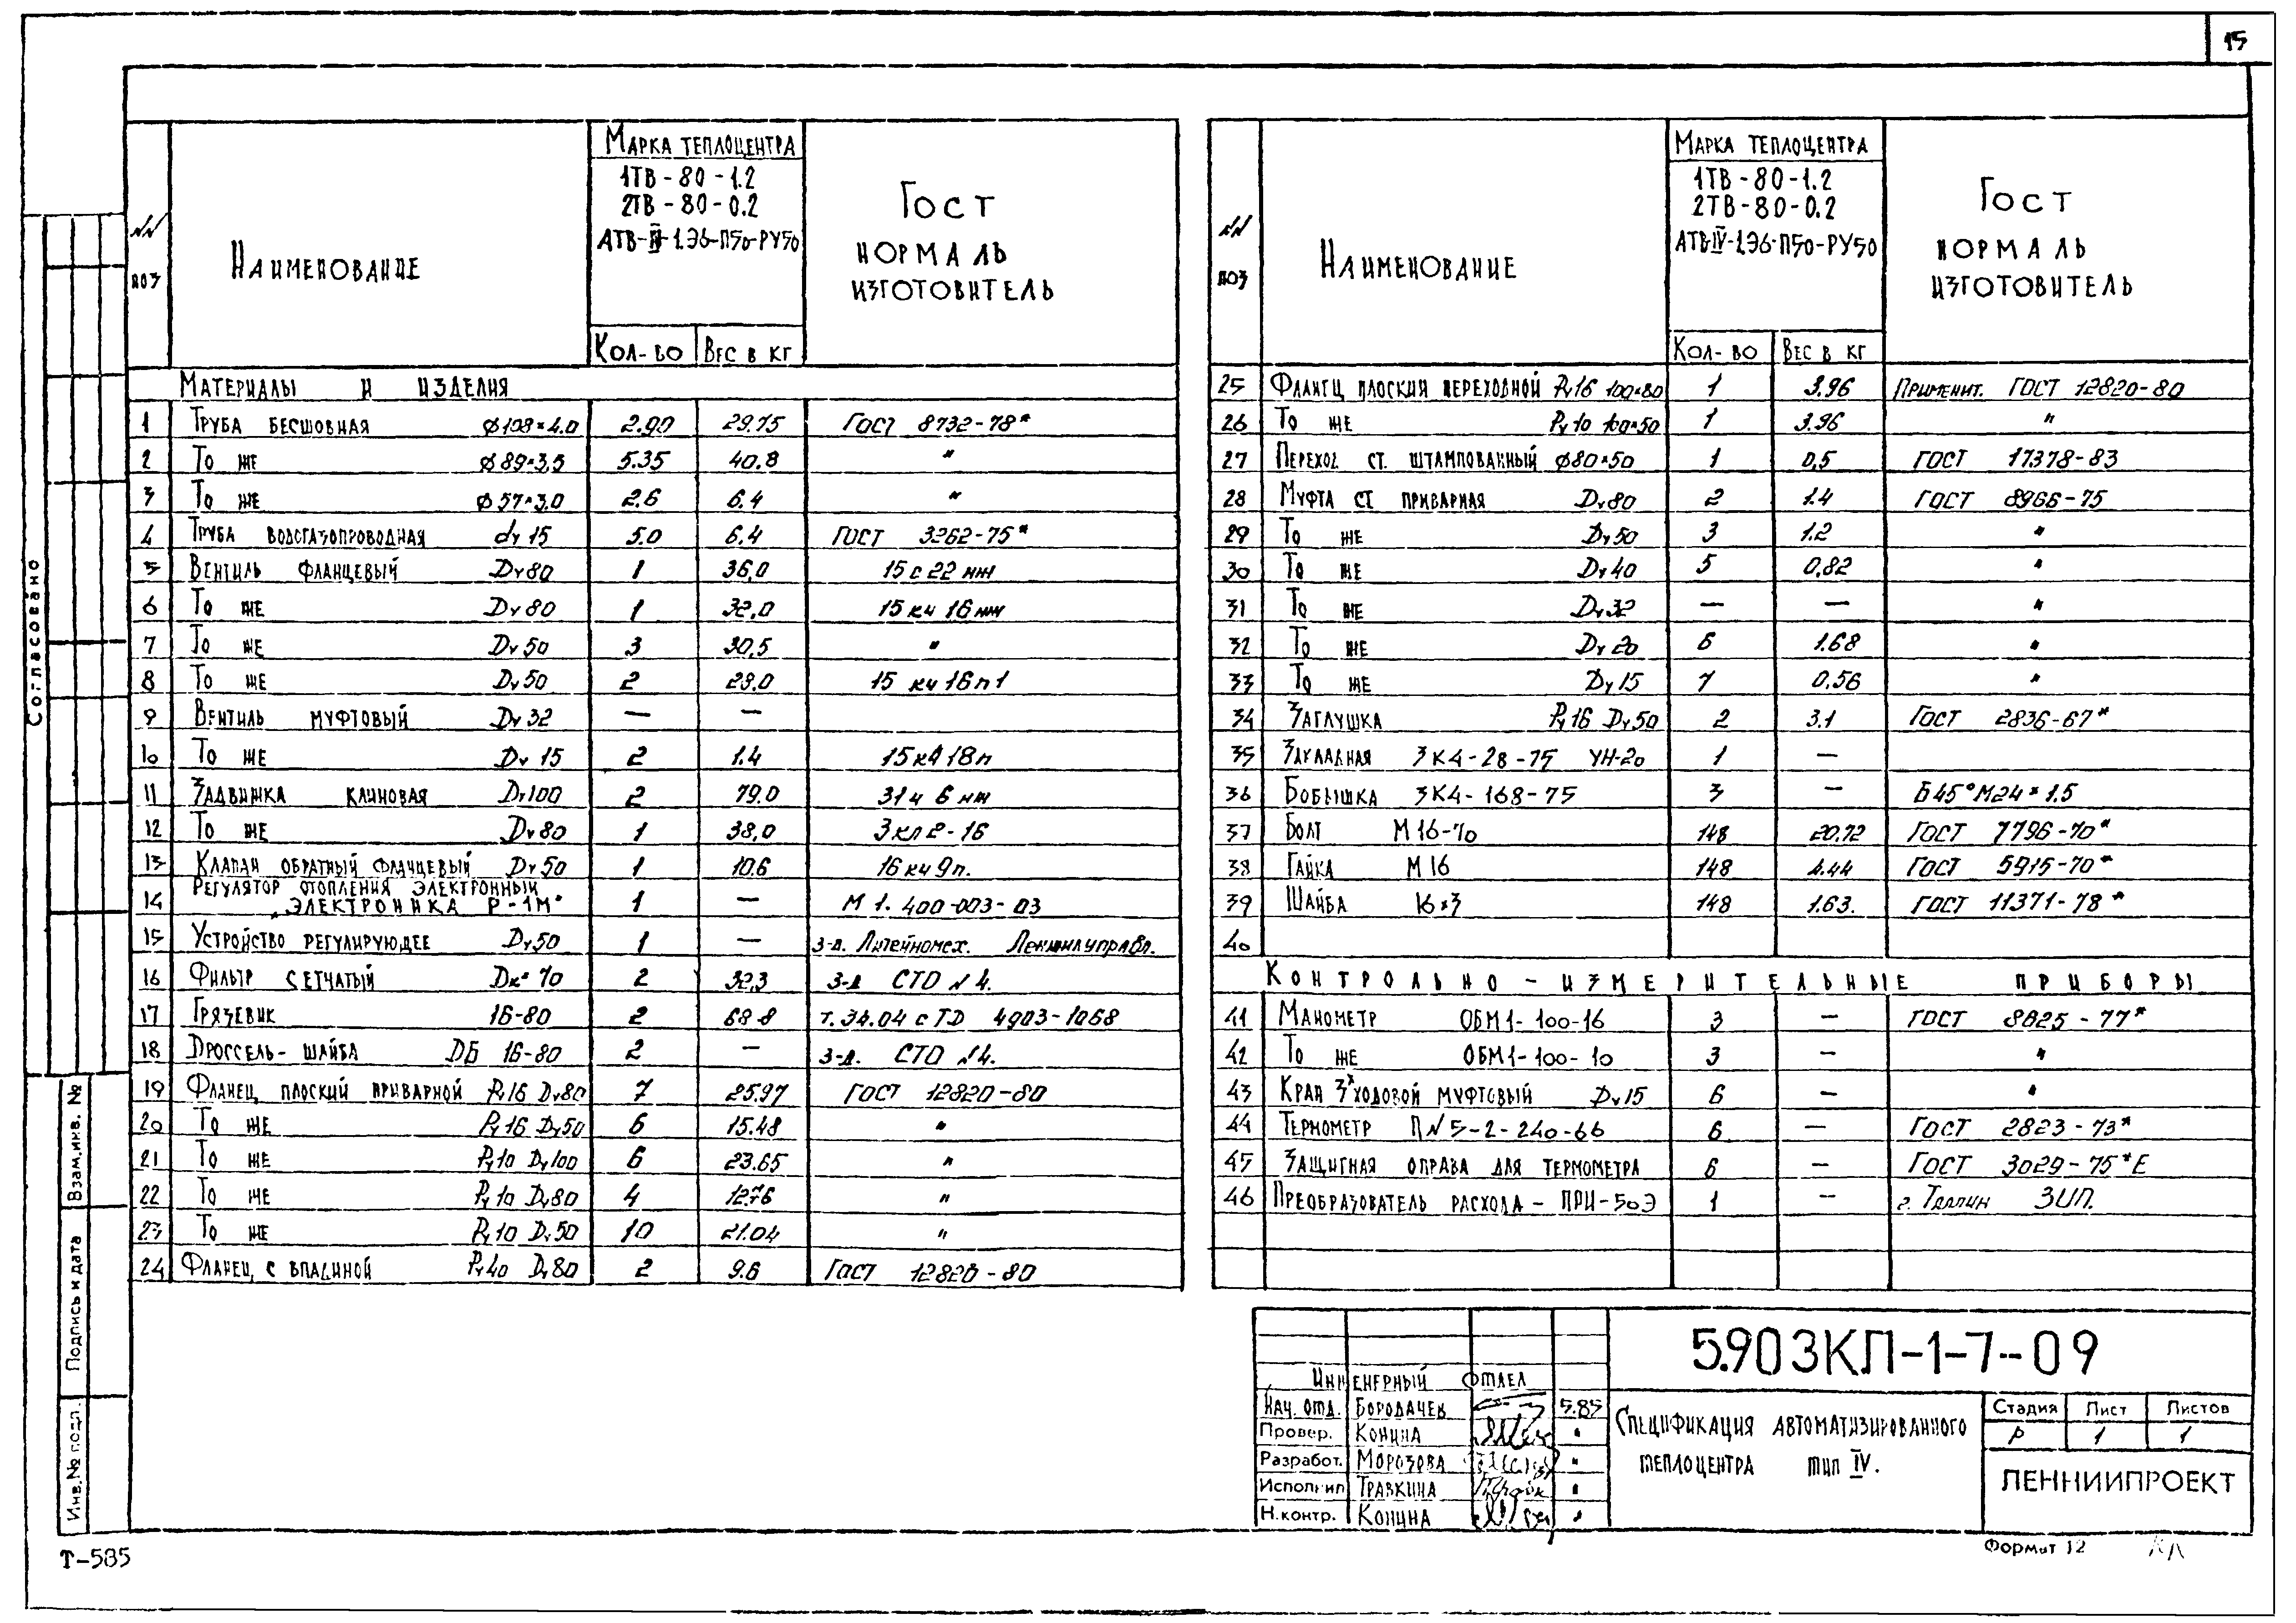 15
NN ПОЗ
НАИМЕНОВАНИЕ
МАРКА ТЕПЛОЦЕНТРА
1ТВ-80-1.2
2ТВ-80-0.2
АТВ-IV-1.Э6-П50-РУ50
КОЛ-ВО ВЕС В КГ
ГОСТ
НОРМАЛЬ
ИЗГОТОВИТЕЛЬ
МАТЕРИАЛЫ И ИЗДЕЛИЯ
1 ТРУБА БЕСШОВНАЯ ø108×4.0 2.90 29.75 ГОСТ 8732-78*
2 ТО ЖЕ ø89×3,5 5.35 40.8 "
3 ТО ЖЕ ø57×3,0 2.6 6.4 "
4 ТРУБА ВОДОГАЗОПРОВОДНАЯ dу 15 5.0 6.4 ГОСТ 3262-75*
5 ВЕНТИЛЬ ФЛАНЦЕВЫЙ Dу80 1 36,0 15с22нж
6 ТО ЖЕ Dу80 1 32,0 15кч16нж
7 ТО ЖЕ Dу50 3 30,5 "
8 ТО ЖЕ Dу50 2 29.0 15кч16п1
9 ВЕНТИЛЬ МУФТОВЫЙ Dу32 — —
10 ТО ЖЕ Dу 15 2 1.4 15кч18п
11 ЗАДВИЖКА КЛИНОВАЯ Dу100 2 79.0 31ч6нж
12 ТО ЖЕ Dу80 1 38,0 3кл2-16
13 КЛАПАН ОБРАТНЫЙ ФЛАНЦЕВЫЙ Dу50 1 10.6 16кч9п.
14 РЕГУЛЯТОР ОТОПЛЕНИЯ ЭЛЕКТРОННЫЙ
„ЭЛЕКТРОНИКА Р-1М" 1 — М1.400-003-03
15 УСТРОЙСТВО РЕГУЛИРУЮЩЕЕ Dу50 1 — з-д. Литейномех. Ленжилуправл.
16 ФИЛЬТР СЕТЧАТЫЙ Dк=70 2 32,3 з-д СТО N4.
17 ГРЯЗЕВИК 16-80 2 68.8 т.34.04 сТД 4903-1068
18 ДРОССЕЛЬ-ШАЙБА ДБ 16-80 2 — з-д. СТО N4.
19 ФЛАНЕЦ ПЛОСКИЙ ПРИВАРНОЙ Ру16 Dу80 7 25.97 ГОСТ 12820-80
20 ТО ЖЕ Ру16 Dу50 6 15.48 "
21 ТО ЖЕ Ру10 Dу100 6 23.65 "
22 ТО ЖЕ Ру10 Dу80 4 12.76 "
23 ТО ЖЕ Ру10 Dу50 10 21.04 "
24 ФЛАНЕЦ С ВПАДИНОЙ Ру40 Dу80 2 9.6 ГОСТ 12820-80
NN ПОЗ
НАИМЕНОВАНИЕ
МАРКА ТЕПЛОЦЕНТРА
1ТВ-80-1.2
2ТВ-80-0.2
АТВ-IV-1.Э6-П50-РУ50
КОЛ-ВО ВЕС В КГ
ГОСТ
НОРМАЛЬ
ИЗГОТОВИТЕЛЬ
25 ФЛАНЕЦ ПЛОСКИЙ ПЕРЕХОДНОЙ Ру16 100×80 1 3.96 Применит. ГОСТ 12820-80
26 ТО ЖЕ Ру10 100×50 1 3.96 "
27 ПЕРЕХОД СТ. ШТАМПОВАННЫЙ ø80×50 1 0,5 ГОСТ 17378-83
28 МУФТА СТ ПРИВАРНАЯ Dу80 2 1.4 ГОСТ 8966-75
29 ТО ЖЕ Dу50 3 1.2 "
30 ТО ЖЕ Dу40 5 0,82 "
31 ТО ЖЕ Dу32 — — "
32 ТО ЖЕ Dу20 6 1.68 "
33 ТО ЖЕ Dу15 7 0.56 "
34 ЗАГЛУШКА Ру16 Dу50 2 3.1 ГОСТ 2836-67*
35 ЗАКЛАДНАЯ ЗК4-28-75 УН-20 1 —
36 БОБЫШКА ЗК4-168-75 3 — Б45°М24×1.5
37 БОЛТ М16-70 148 20,72 ГОСТ 7796-70*
38 ГАЙКА М16 148 4.44 ГОСТ 5915-70*
39 ШАЙБА 16×3 148 1.63. ГОСТ 11371-78*
40
КОНТРОЛЬНО-ИЗМЕРИТЕЛЬНЫЕ ПРИБОРЫ
41 МАНОМЕТР ОБМ1-100-16 3 — ГОСТ 8625-77*
42 ТО ЖЕ ОБМ1-100-10 3 — "
43 КРАН 3х ХОДОВОЙ МУФТОВЫЙ Dу15 6 — "
44 ТЕРМОМЕТР ПN5-2-240-66 6 — ГОСТ 2823-73*
45 ЗАЩИТНАЯ ОПРАВА ДЛЯ ТЕРМОМЕТРА 6 — ГОСТ 3029-75*Е
46 ПРЕОБРАЗОВАТЕЛЬ РАСХОДА - ПРИ-50Э 1 — г. Таллин ЗИП.
Согласовано
Взам.инв. №
Подпись и дата
Инв.№ подл.
5.903КЛ-1-7-09
ИНЖЕНЕРНЫЙ ОТДЕЛ
НАЧ. ОТД. БОРОДАЧЕВ 5.85
Провер. КОНИНА "
Разработ. МОРОЗОВА "
Исполнил ТРАВКИНА "
Н.контр. КОНИНА "
СПЕЦИФИКАЦИЯ АВТОМАТИЗИРОВАННОГО
ТЕПЛОЦЕНТРА ТИП IV.
Стадия Лист Листов
Р 1 1
ЛЕННИИПРОЕКТ
Т-585
Формат 12